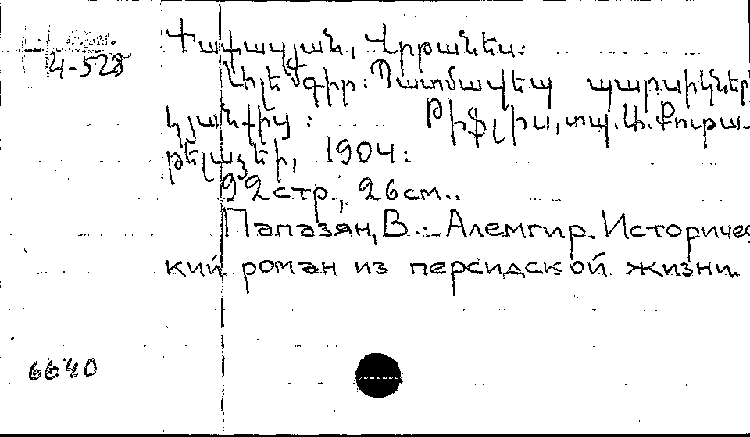 Арм.
4-528
Փափազյան, Վրթանես:
Ալեմգիր: Պատմավեպ պարսիկներ
կյանքից: Թիֆլիս, տպ. Մ. Շարա-
ձե, 1904:
92 стр., 26 см..
Папазян, В. - Алемгир. Историчес
кий роман из персидской жизни.
6640